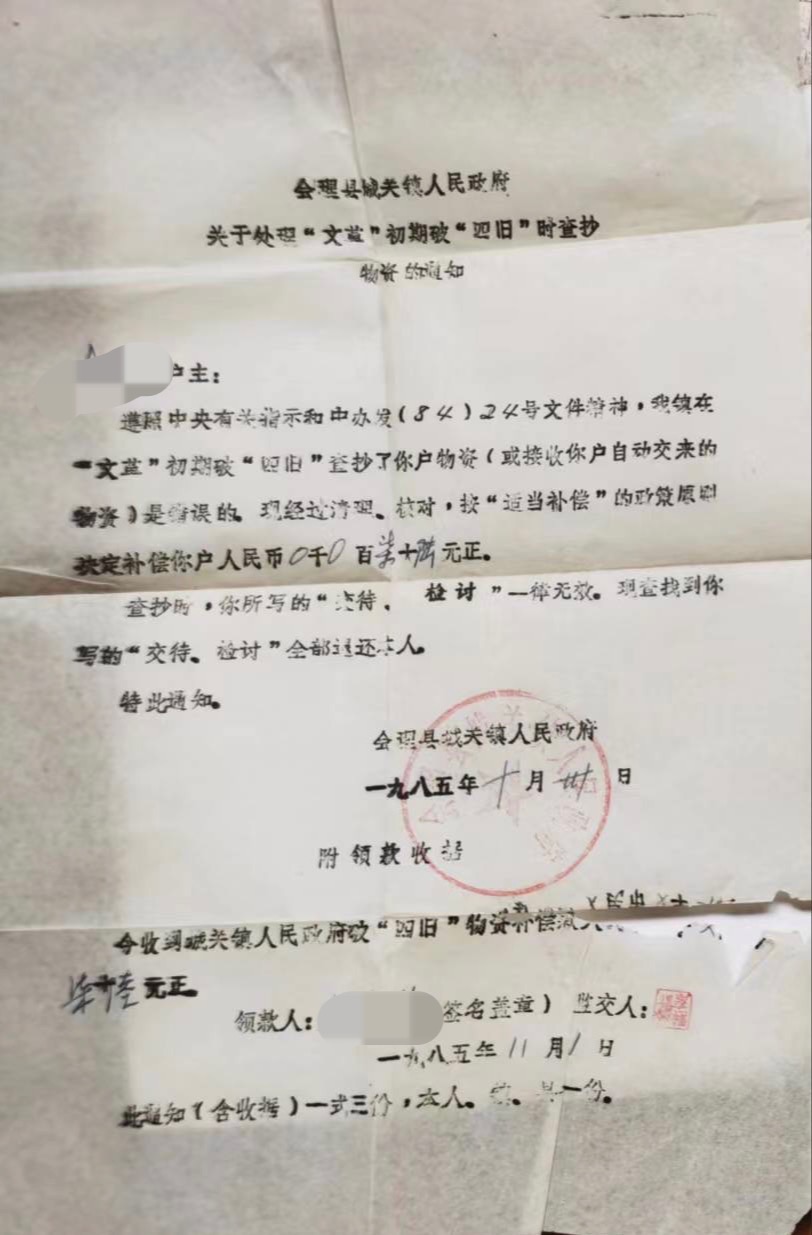 会理县城关镇人民政府
关于处理“文革”初期破“四旧”时查抄
物资的通知
户主：
遵照中央有关指示和中办发(84)24号文件精神，我镇在
“文革”初期破“四旧”查抄了你户物资(或接收你户自动交来的
物资)是错误的。现经过清理、核对，按“适当补偿”的政策原则
决定补偿你户人民币0千0百柒十陆元正。
查抄时，你所写的“交待、检讨”一律无效。现查找到你
写的“交待、检讨”全部退还本人。
特此通知。
会理县城关镇人民政府
一九八五年十月卅日
附领款收据
今收到城关镇人民政府破“四旧”物资补偿
柒十陆元正。
领款人：签名盖章) 监交人：
一九八五年11月1日
此通知(含收据)一式三份，本人、镇、县一份。